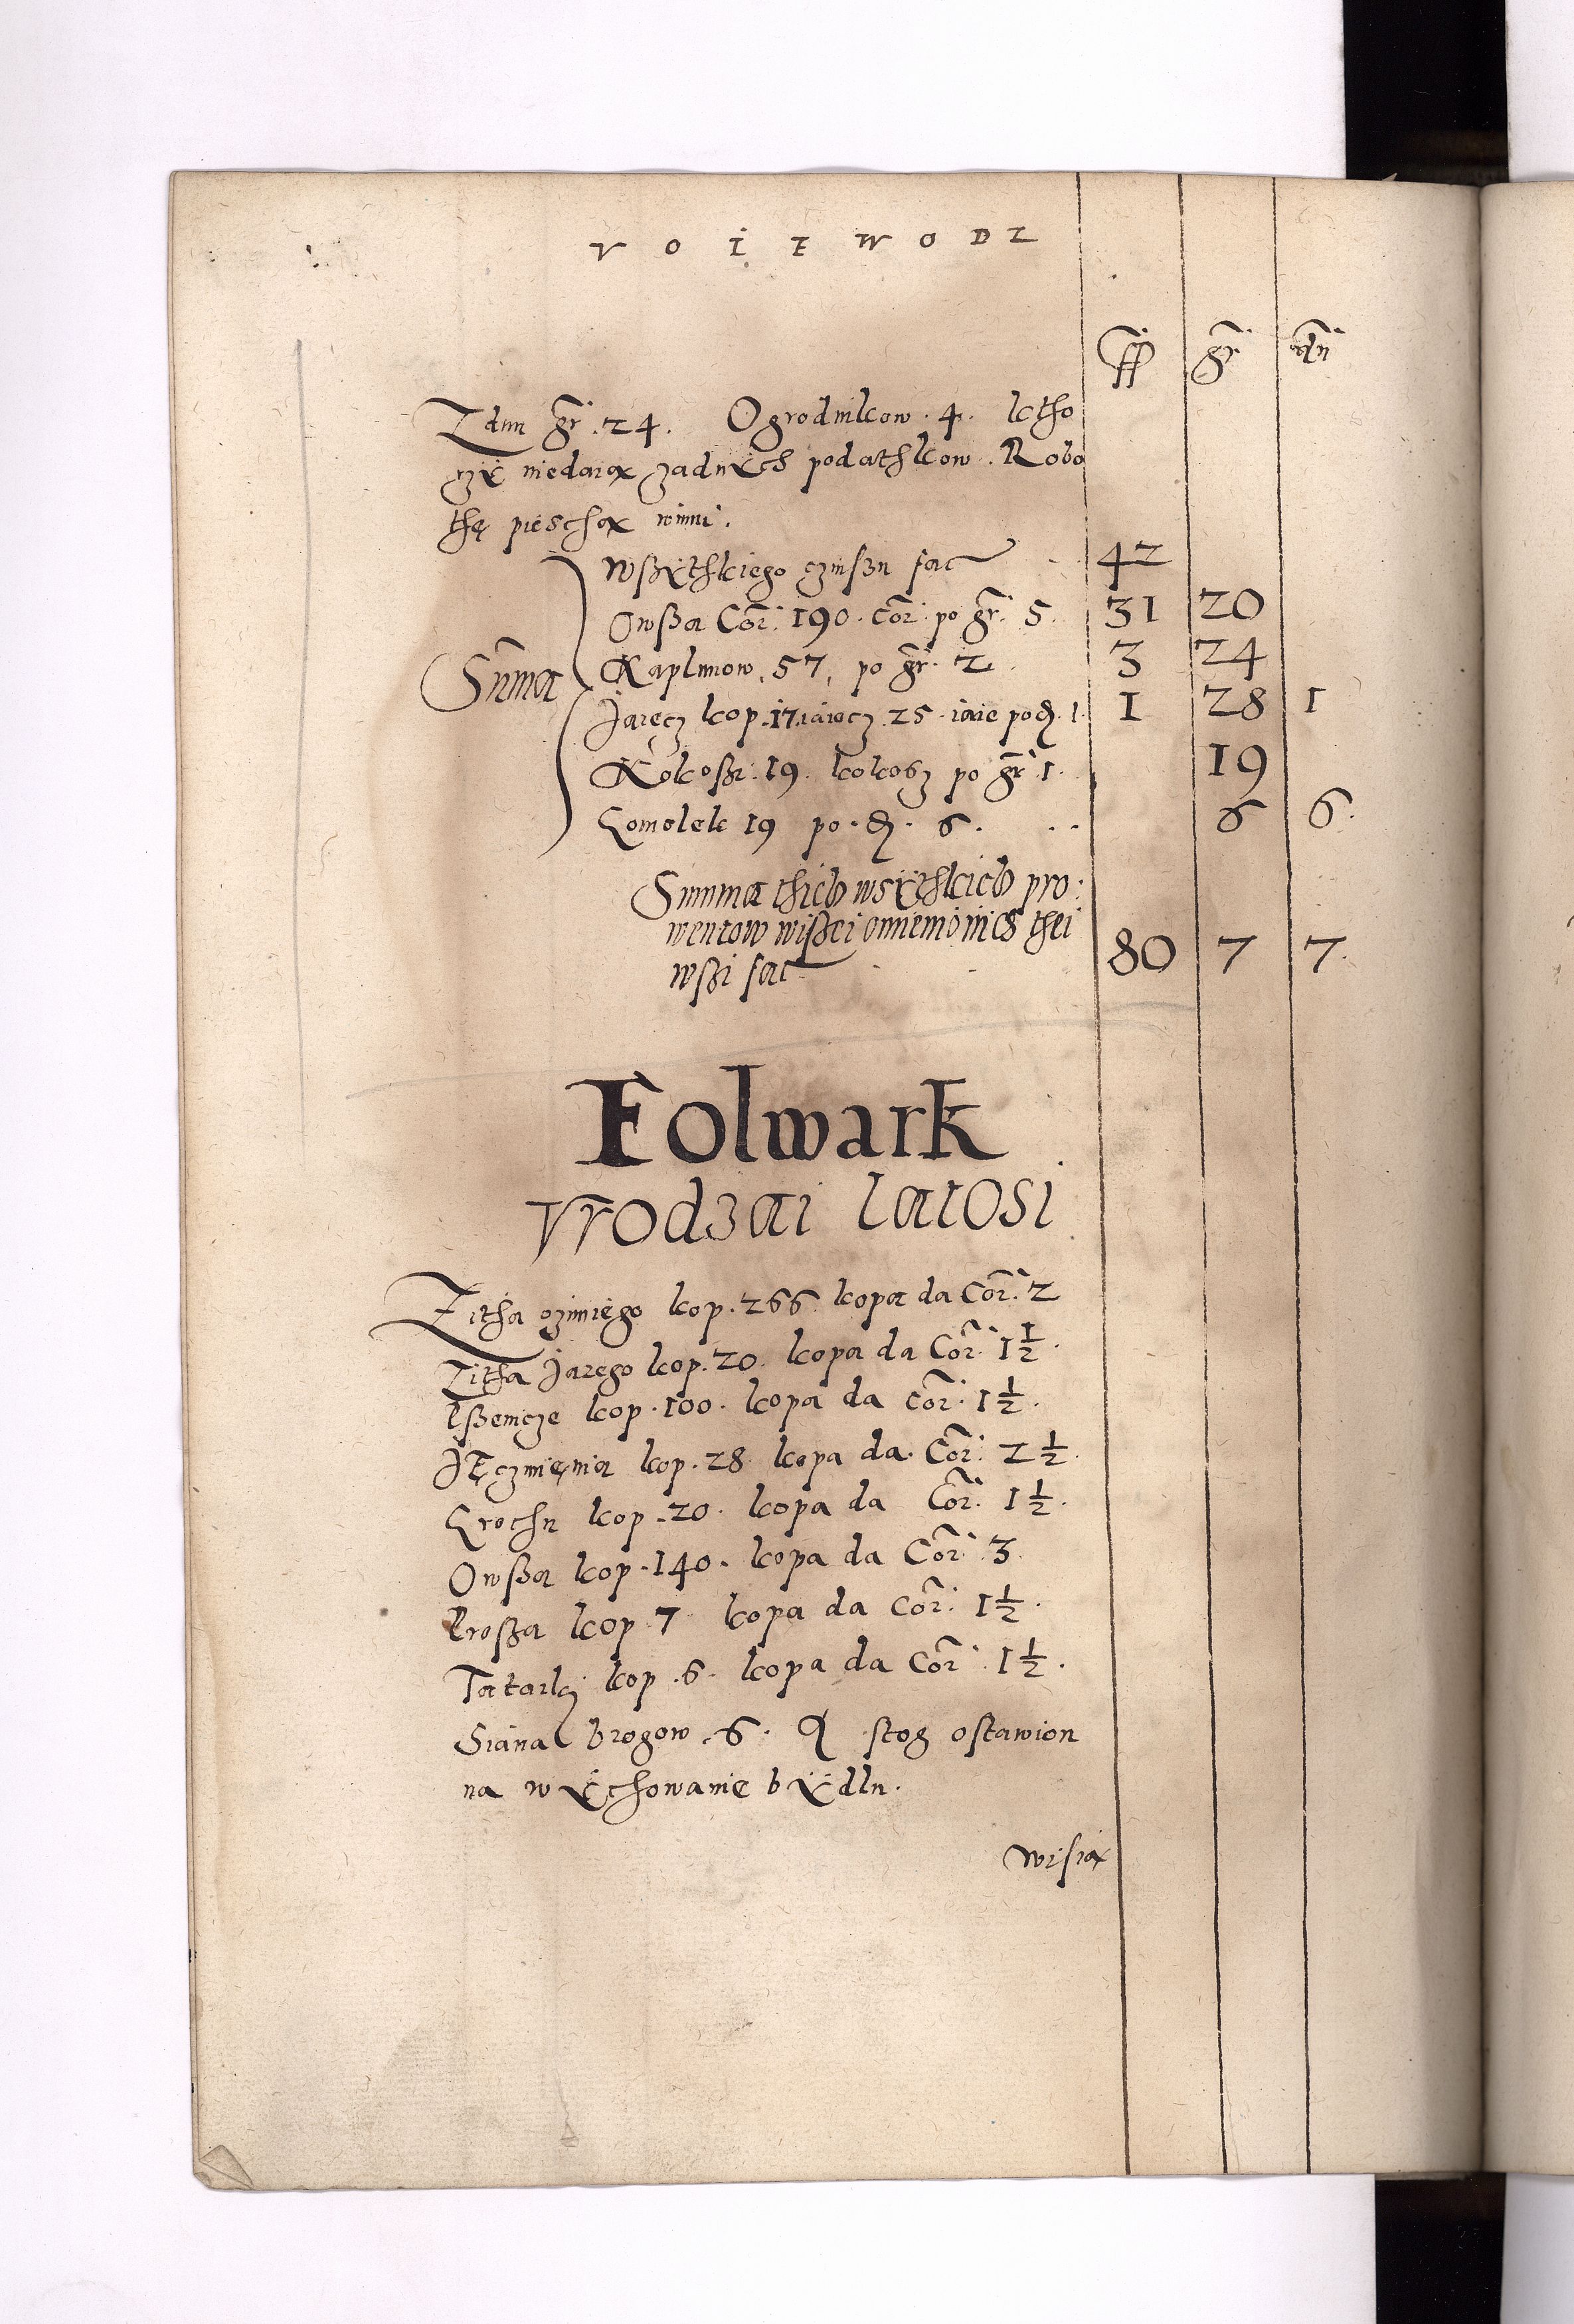 V O I E W O D Z
ff gr dn
Zdun gr. 24. Ogrodnikow. 4. ktho
rzÿ niedaią zadnÿch podathkow. Robo
thę pieschą winni.
Summa
wßÿthkiego czinßu fac 42
Owßa Cor. 190. Cor. po gr. 5. 31 20
Kaplunow. 57. po gr. 2. 3 24
Jaięcz kop. 17. iaiecz. 25. iaie po d. 1. 1 28 1
Kokoßi. 19. kokosz po gr. 1. 19
Gomolek 19 po. d. 6. 6 6.
Summa thich wsÿthkich pro:
wentow wißei omienionich thei
wßi fac 80 7 7.
Folwark
Vrodzai latosi
Zitha ozimiego kop. 266. kopa da Cor. 2
Zitha Jarego kop. 20. kopa da Cor. 1 1/2.
Pßenicze kop. 100. kopa da Cor. 1 1/2.
Jęczmięnia kop. 28. kopa da. Cor. 2 1/2.
Grochu kop. 20. kopa da Cor. 1 1/2.
Owßa kop. 140. kopa da Cor. 3.
Proßa kop 7 kopa da Cor. 1 1/2.
Tatarki kop. 6. kopa da Cor. 1 1/2.
Siana brogow. 6. stog ostawion
na wÿchowanie bÿdlu.
wisią